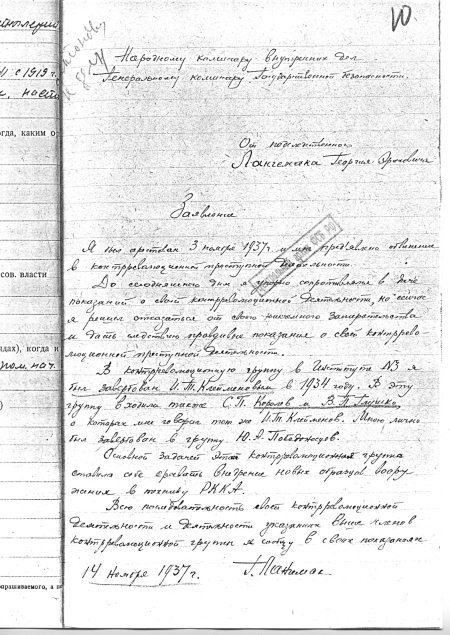 10
Народному комиссару внутренних дел
Генеральному комиссару Государственной безопасности
От подследственного
Лангемака Георгия Эриховича
Заявление
Я был арестован 3 ноября 1937г и мне предъявлено обвинение
в контрреволюционной преступной деятельности.
До сегодняшнего дня я упорно сопротивлялся в даче
показаний о своей контрреволюционной деятельности, но сейчас
я решил отказаться от своего никчемного запирательства
и дать следствию правдивые показания о своей контррево-
люционной преступной деятельности.
В контрреволюционную группу в Институте №3 я
был завербован И.Т. Клейменовым в 1934 году. В эту
группу входили также С.П. Королев и В.П. Глушко,
о которых мне говорил тот же И.Т. Клейменов. Мною лично
был завербован в группу Ю.А. Победоносцев.
Основной задачей этая контрреволюционная группа
ставила себе срывать внедрение новых образцов воору
жения в технику РККА.
Всю последовательность своей контрреволюционной
деятельности и деятельности указанных выше членов
контрреволюционной группы я сообщу в своих показаниях
14 Ноября 1937г.
Г. Лангемак
с 1919 г.
огда, каким о
сов. власти
дах), когда и
прашиваемого, а п